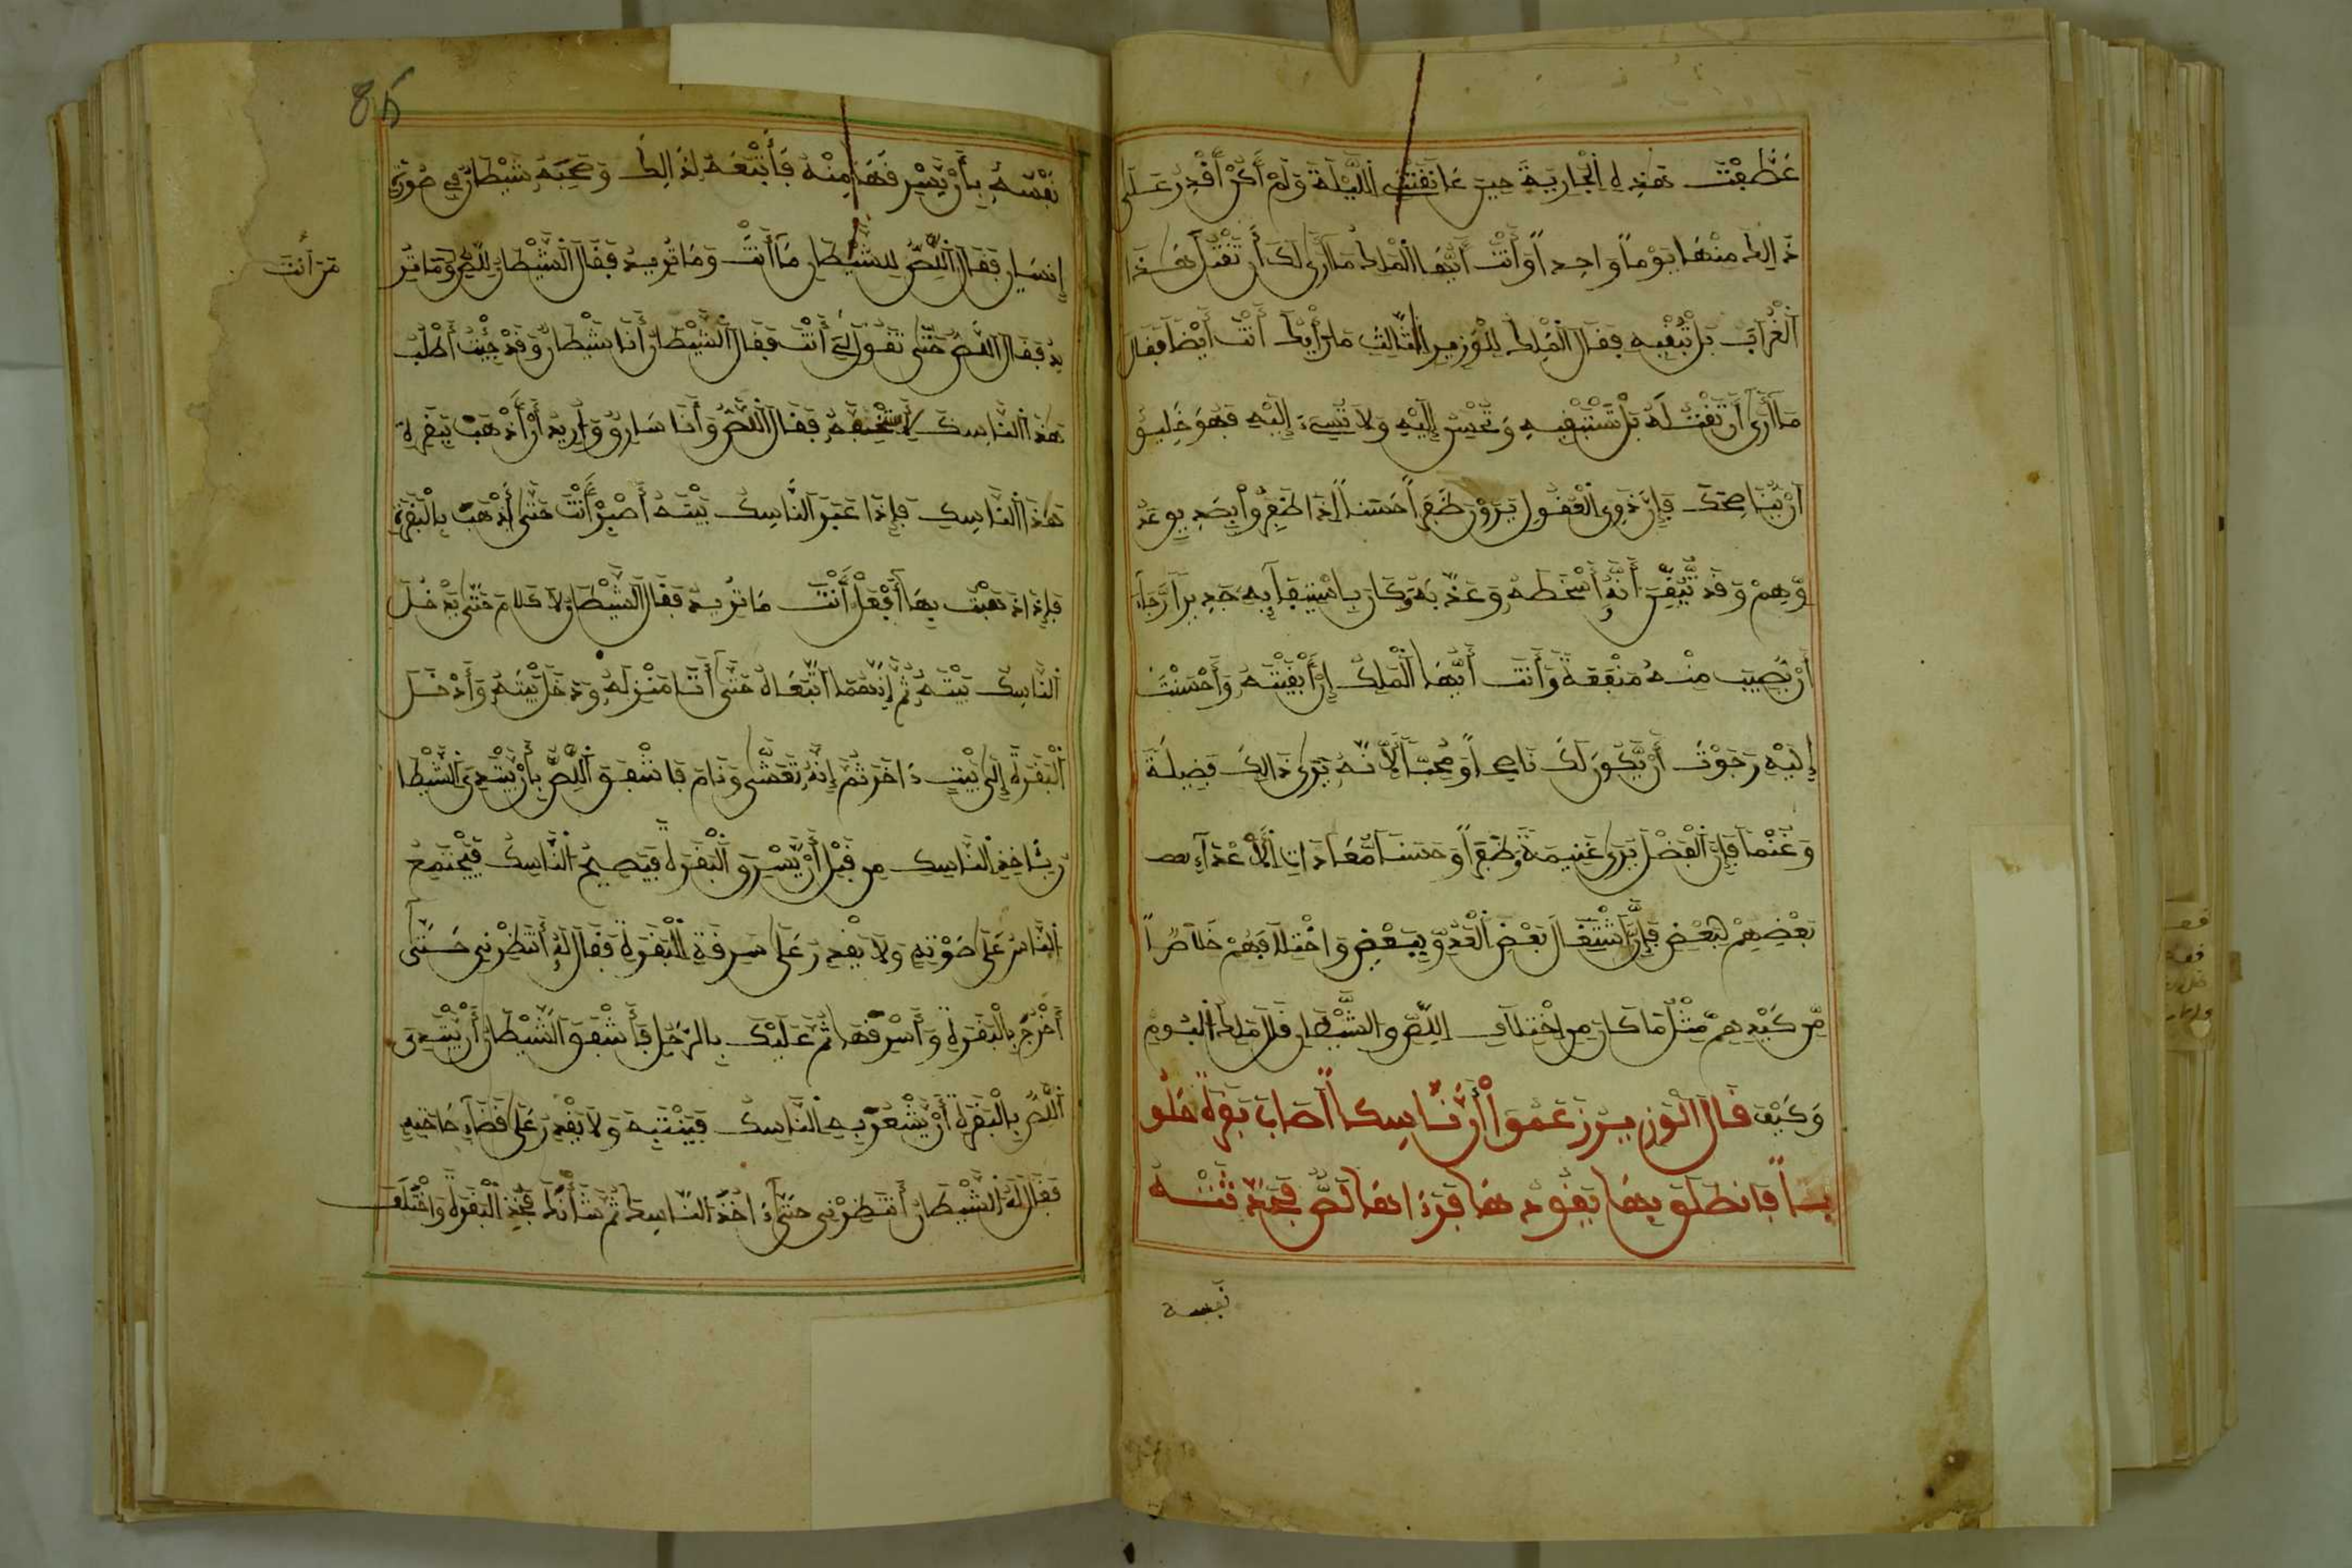 عَطَّفَتْ هَذِهِ الْجَارِيَةَ حِينَ عَانَقَتْنِي اللَّيْلَةَ وَلَمْ أَكُنْ أَقْدِرُ عَلَى
ذَالِكَ مِنْهَا يَوْمًا وَاحِدًا وَأَنْتَ أَيُّهَا الْمَلِكُ مَا أَرَى لَكَ أَنْ تَقْتُلَ هَذَا
الْغُرَابَ بَلْ تُبْقِيهِ فَقَالَ الْمَلِكُ لِلْوَزِيرِ الثَّالِثِ مَا رَأْيُكَ أَنْتَ أَيْضًا فَقَالَ
مَا أَرَى أَنْ تَقْتُلَهُ بَلْ تَسْتَبْقِيهِ وَتُحْسِنُ إِلَيْهِ وَلَا تُسِيءُ إِلَيْهِ فَهُوَ خَلِيقٌ
أَنْ يُنَاصِحَكَ فَإِنَّ ذَوِي الْعُقُولِ يَرَوْنَ ظَفَرًا حَسَنًا إِذَا ظَفِرُوا بِعَدُ
وِّهِمْ وَقَدْ تُيُقِّنَ أَنَّهُ أَسْخَطَهُ وَعَذَّبَهُ وَكَانَ بِاسْتِبْقَائِهِ جَدِيرًا رَجَاءَ
أَنْ يُصِيبَ مِنْهُ مَنْفَعَةً وَأَنْتَ أَيُّهَا الْمَلِكُ إِنْ أَبْقَيْتَهُ وَأَحْسَنْتَ
إِلَيْهِ رَجَوْتُ أَنْ يَكُونَ لَكَ نَاصِحًا وَمُحِبًّا لِأَنَّهُ يَرَى ذَالِكَ فَضِيلَةً
وَغُنْمًا فَإِنَّ الْفَضْلَ يَرَى غَنِيمَةً وَظَفَرًا وَحَسَنًا مُّعَادَاتِ الْأَعْدَاءِ
بَعْضِهِمْ لِبَعْضٍ فَإِنَّ اشْتِغَالَ بَعْضِ الْعَدُوِّ بِبَعْضٍ وَاخْتِلَافَهُمْ خَلَاصًا
مِّنْ كَيْدِهِمْ مِثْلُ مَا كَانَ مِنِ اخْتِلَافِ اللِّصِّ وَالشَّيْطَانِ قَالَ مَلِكُ الْبُومِ
وَكَيْفَ قَالَ الْوَزِيرُ زَعَمُوا أَنَّ نَّاسِكًا أَصَابَ بَقَرَةً حَلُو
بًا فَانْطَلَقَ بِهَا يَقُودُهَا فَرَءَاهَا لِصٌّ فَحَدَّثَتْهُ
نفسه
85
نَفْسُهُ بِأَنْ يَّسْرِقَهَا مِنْهُ فَاتَّبَعَهُ لِذَالِكَ وَصَحِبَهُ شَيْطَانٌ فِي صُورَةِ
إِنْسَانٍ فَقَالَ اللِّصُّ لِلشَّيْطَانِ مَا أَنْتَ وَمَا تُرِيدُ فَقَالَ الشَّيْطَانُ لِلِّصِّ وَمَا تُرِ
من أنت
يدُ فَقَالَ اللِّصُّ حَتَّى تَقُولَ لِي أَنْتَ فَقَالَ الشَّيْطَانُ أَنَا شَيْطَانٌ وَقَدْ جِئْتُ أَطْلُبُ
هَذَا النَّاسِكَ لِأَخْنِقَهُ فَقَالَ اللِّصُّ وَأَنَا سَارِقٌ وَأُرِيدُ أَنْ أَذْهَبَ بِبَقَرَةِ
هَذَا النَّاسِكِ فَإِذَا عَبَرَ النَّاسِكُ بَيْتَهُ أَصْبِرْ أَنْتَ حَتَّى أَذْهَبَ بِالْبَقَرَةِ
فَإِذَا ذَهَبْتُ بِهَا أَفْعَلْ أَنْتَ مَا تُرِيدُ فَقَالَ الشَّيْطَانُ لَا كَلَامَ حَتَّى يَدْخُلَ
النَّاسِكُ بَيْتَهُ ثُمَّ إِنَّهُمَا اتَّبَعَاهُ حَتَّى أَتَا مَنْزِلَهُ وَدَخَلَ بَيْتَهُ وَأَدْخَلَ
الْبَقَرَةَ إِلَى بَيْتٍ ءَاخَرَ ثُمَّ إِنَّهُ تَعَشَّى وَنَامَ فَأَشْفَقَ اللِّصُّ بِأَنْ يَّبْتَدِيَ الشَّيْطَا
نُ بِأَخْذِ النَّاسِكِ مِنْ قَبْلِ أَنْ يَّسْرِقَ الْبَقَرَةَ فَيَصِيحُ النَّاسِكُ فَيَجْتَمِعُ
النَّاسُ عَلَى صَوْتِهِ وَلَا يَقْدِرُ عَلَى سَرِقَةِ الْبَقَرَةِ فَقَالَ لَهُ أَنْتَظِرْنِي حَتَّى
أَخْرُجَ بِالْبَقَرَةِ وَأَسْرِقَهَا ثُمَّ عَلَيْكَ بِالرَّجُلِ فَأَشْفَقَ الشَّيْطَانُ أَنْ يَّبْتَدِيَ
اللِّصُّ بِالْبَقَرَةِ أَنْ يَّشْعُرَ بِهِ النَّاسِكُ فَيَنْتَبِهَ وَلَا يَقْدِرُ عَلَى قَضَاءِ حَاجَتِهِ
فَقَالَ لَهُ الشَّيْطَانُ أَنْتَظِرْنِي حَتَّى ءَاخُذَ النَّاسِكَ ثُمَّ شَأْنُكَ فَخُذِ الْبَقَرَةَ وَاخْتَلَفَ